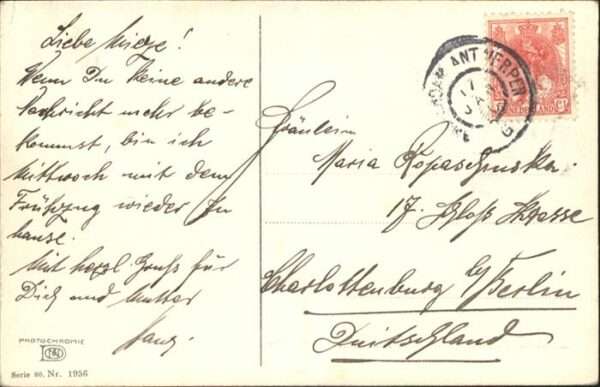 Liebe Mieze!
Wenn Du keine andere
Nachricht mehr be-
kommst, bin ich
Mittwoch mit dem
Frühzug wieder zu
hause.
Mit herzl. Gruß für
Dich und Mutter
Hans.
PHOTOCHROMIE
Serie 80. Nr. 1936
ANTWERPEN
NEDERLAND
Fräulein
Maria
17. Schloß Strasse
Charlottenburg b/Berlin
Duitschland